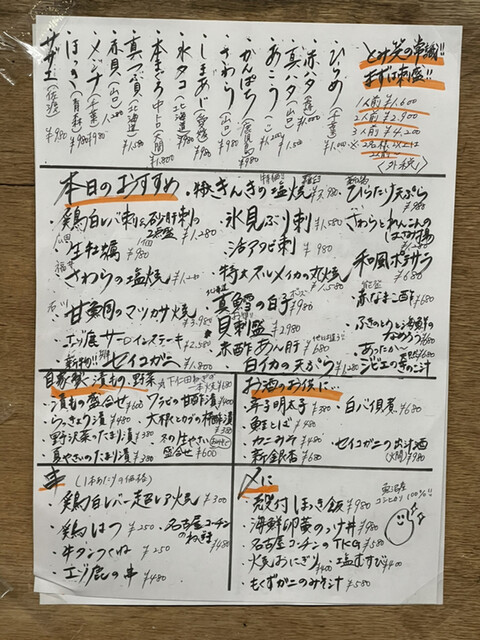 とみ笑の常識!!
まずは刺盛!!
1人前 ¥1.600
2人前 ¥2.900
3人前 ¥4.200
<外税>
ひらめ (千葉) ¥1.000
赤ハタ
真ハタ (山口) ¥1.200
あこう
かんぱち (鹿児島) ¥980
さわら (山口) ¥980
しまあじ (愛媛) ¥980
水タコ (北海道) ¥980
本まぐろ 中トロ (大間) ¥1.800
真つぶ (北海道) ¥1.580
赤貝 (山口) 1.280
メジナ (千葉) ¥980
ほっき (青森) ¥980
サザエ (佐渡) ¥980
本日のおすすめ
・鶏白レバ刺と砂肝刺の2点盛 ¥1.280
・生牡蠣 ¥980
・さわらの塩焼 ¥1.200
・甘鯛のマツカサ焼 ¥3.980
・エゾ鹿サーロインステーキ ¥2.580
・新物!! セイコガニ ¥1.800
・特きんきの塩焼
・氷見ぶり刺 ¥1.580
・活アワビ刺 ¥980
・特大スルメイカの丸焼 ¥1.580
・真鱈の白子 ポン酢 ¥980
・貝刺盛 ¥2.980
・赤酢あん肝 ¥680
・白イカの天ぷら ¥1.280
・ひらたけ天ぷら ¥980
・さわらとれんこんのはさみ揚
・和風ポテサラ ¥680
・赤なまこ酢 ¥680
・ふきのとうと海鮮のなめろう ¥680
・あったか〜い ジビエのきのこ汁
自家製 漬もの 野菜
・漬もの盛合せ ¥600
・らっきょう漬 ¥480
・野沢菜のたまり漬 ¥380
・夏やさいのたまり漬 ¥280
・下仁田ねぎの一本焼 ¥680
・ワラビの甘酢漬 ¥400
・大根とカブの柚酢漬 ¥380
・冬の生やさい盛合せ ¥600
お酒のお供に…
・辛子明太子 ¥380
・鮭とば ¥480
・カニみそ ¥480
・新銀杏 ¥680
・白バイ貝煮 ¥680
・セイコガニの出汁酒 ¥980
串 (1本あたりの価格)
・鶏白レバー超レア焼 ¥300
・鶏はつ ¥250
・牛タンつくね ¥250
・エゾ鹿の串 ¥480
・名古屋コーチンのねぎま ¥480
〆に
・殻付ほっき飯 ¥980
・海鮮卵黄のっけ丼 ¥980
・名古屋コーチンのTKG ¥580
・焼おにぎり ¥400 ・塩むすび ¥400
・もくずガニのみそ汁 ¥580
魚沼産
コシヒカリ100%!!